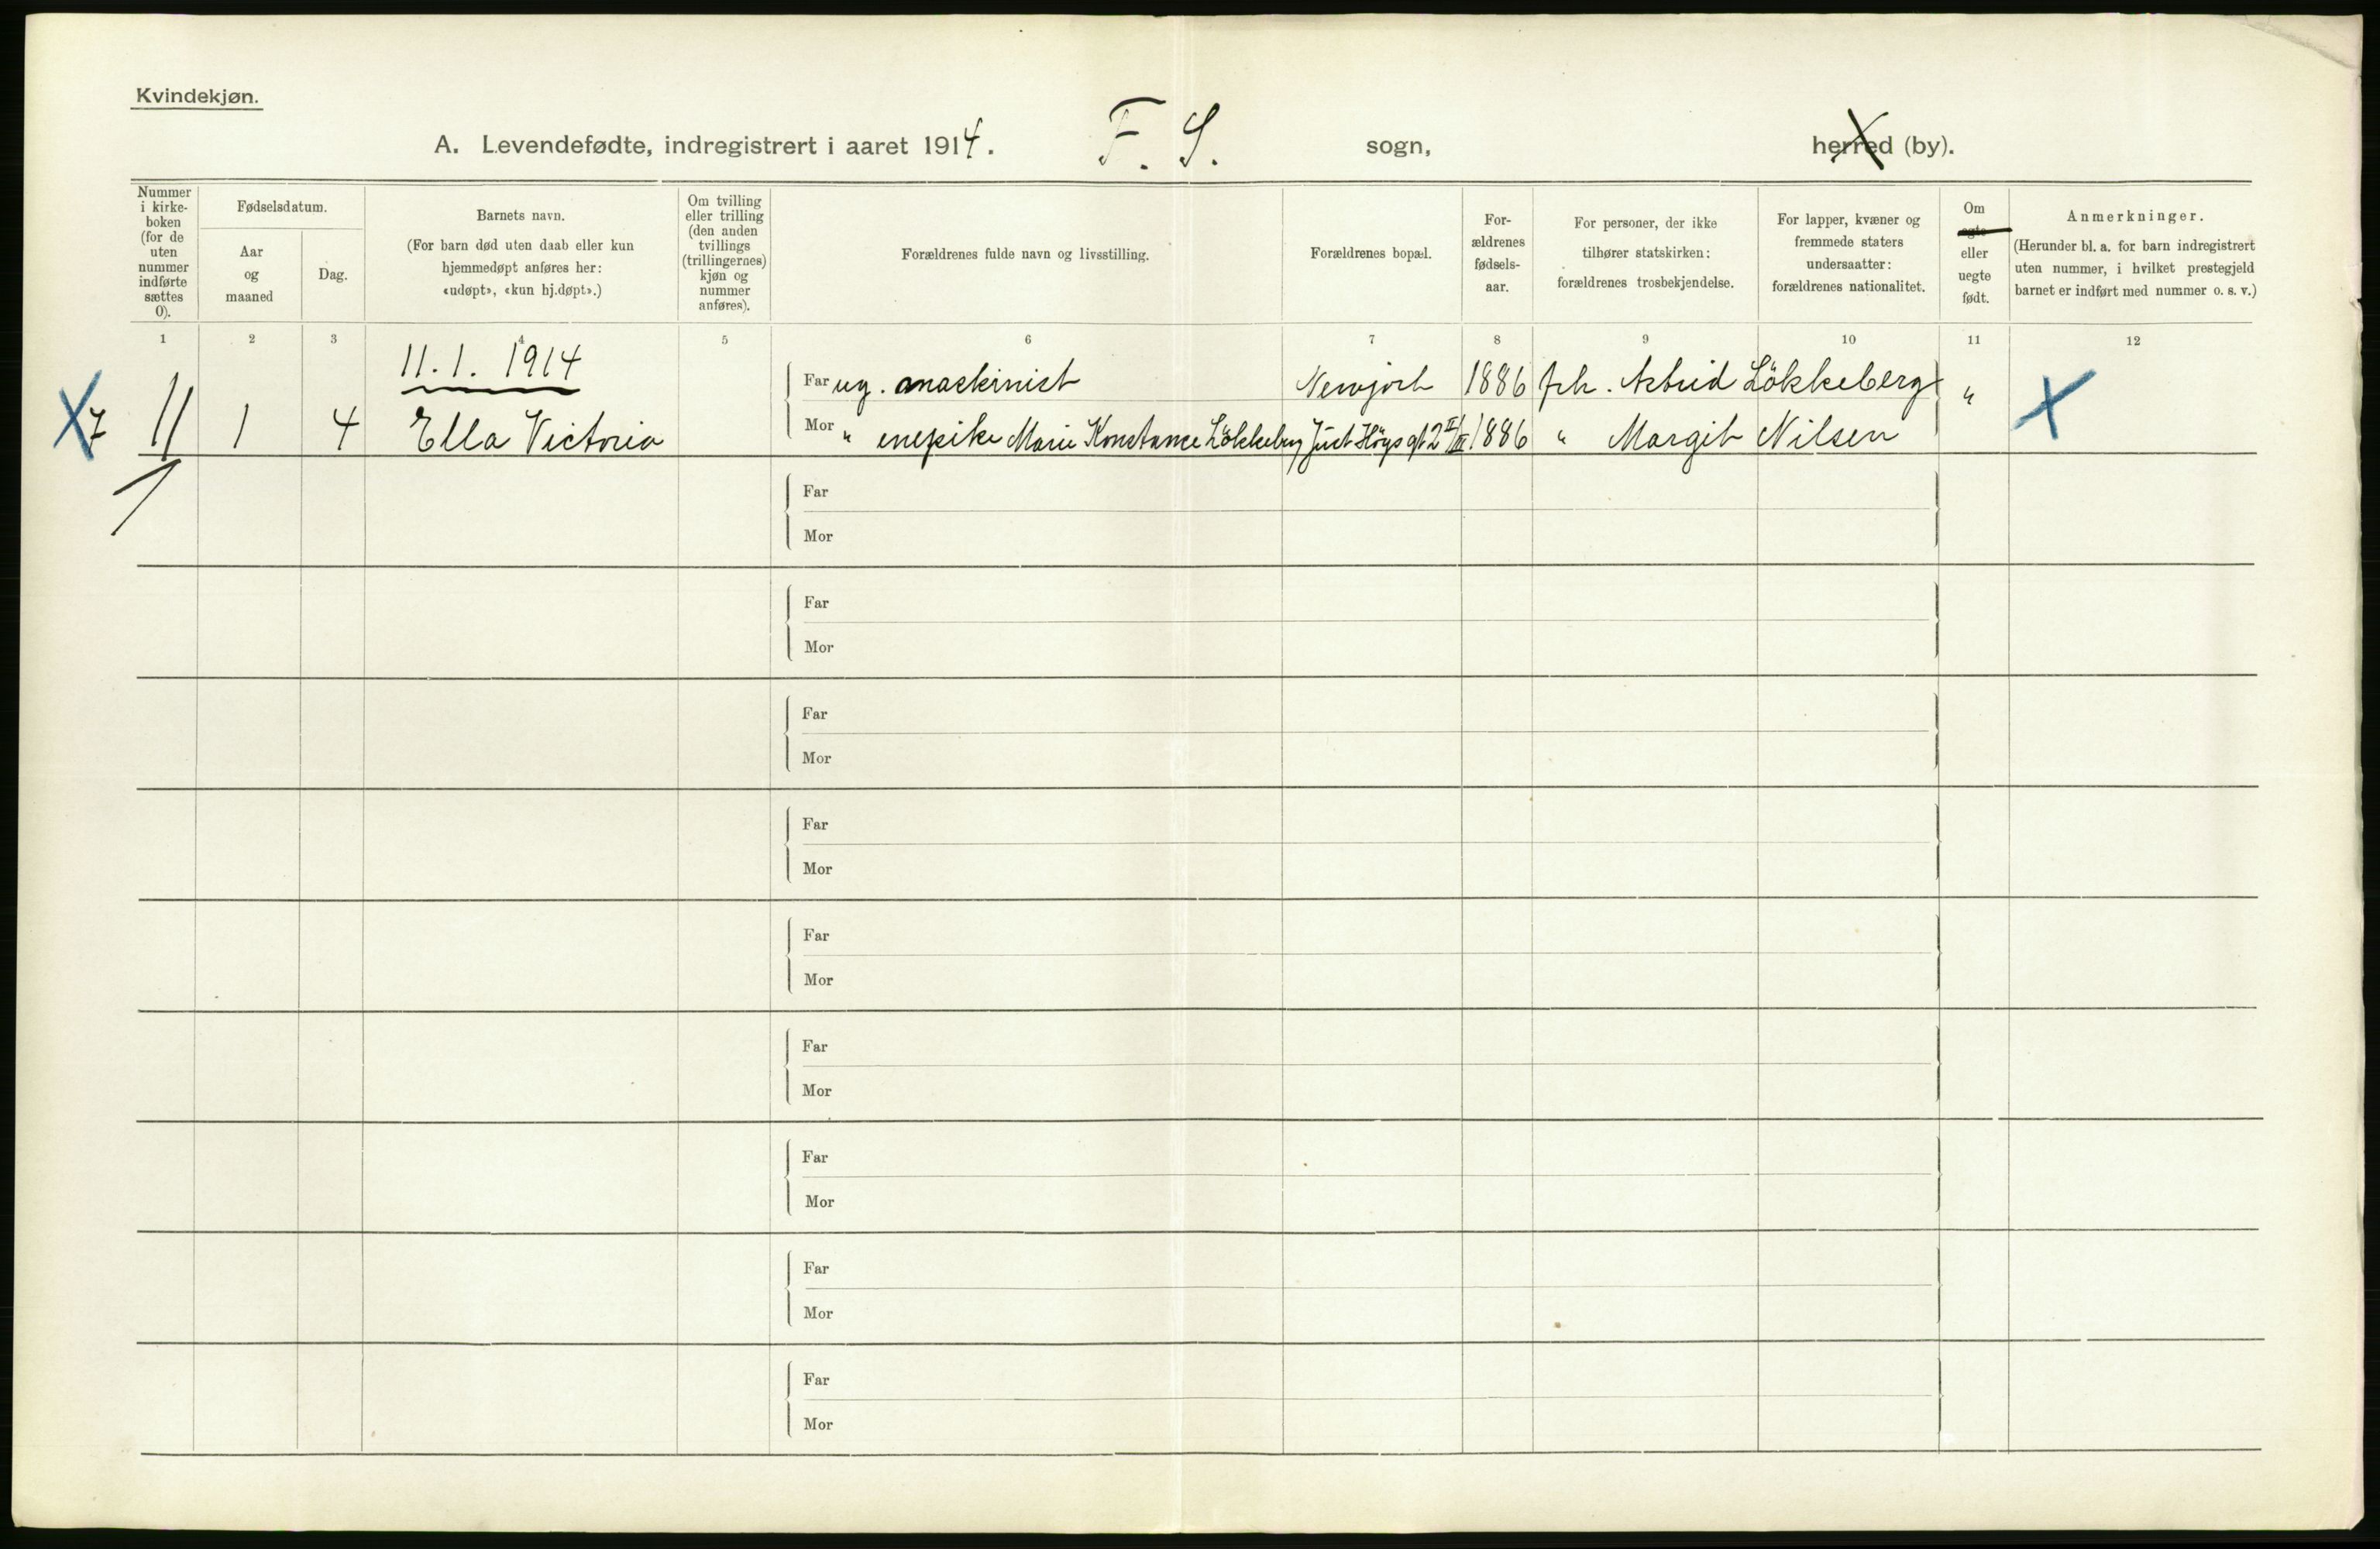 Kvindekjøn.
A. Levendefødte, indregistrert i aaret 1914. F. S. sogn, herred (by).
Nummer i kirkeboken (for de uten nummer indførte sættes 0).
Fødselsdatum.
Aar og maaned
Dag.
Barnets navn.
(For barn død uten daab eller kun hjemmedøpt anføres her: «udøpt», «kun hj.døpt».)
Om tvilling eller trilling (den anden tvillings (trillingernes) kjøn og nummer anføres).
Forældrenes fulde navn og livsstilling.
Forældrenes bopæl.
Forældrenes fødselsaar.
For personer, der ikke tilhører statskirken: forældrenes trosbekjendelse.
For lapper, kvæner og fremmede staters undersaatter: forældrenes nationalitet.
Om egte eller uegte født.
Anmerkninger.
(Herunder bl. a. for barn indregistrert uten nummer, i hvilket prestegjeld barnet er indført med nummer o. s. v.)
1 2 3 4 5 6 7 8 9 10 11 12
11. 1. 1914
Far ug. maskinist Newjork 1886 frk. Astrid Løkkeberg "
X 7 11 1 4 Ella Victoria Mor " enepike Marie Konstance Løkkeberg Just Høgs gt 2 II/III 1886 " Margit Nilsen X
Far
Mor
Far
Mor
Far
Mor
Far
Mor
Far
Mor
Far
Mor
Far
Mor
Far
Mor
Far
Mor